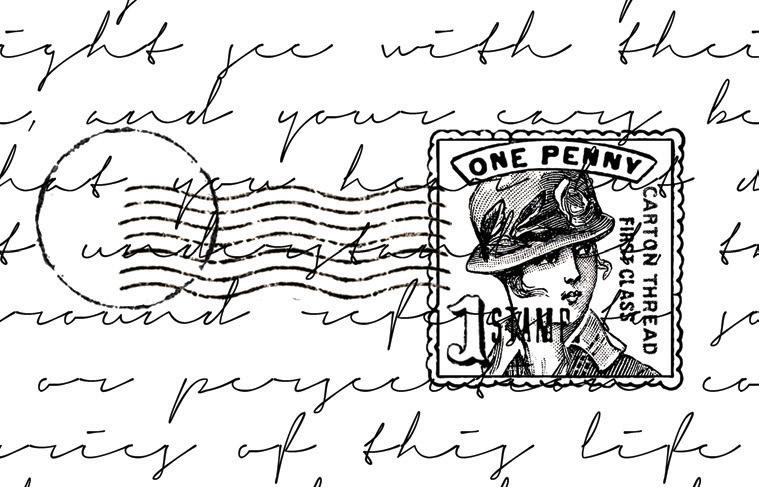 ight see with thei
, and your ears be
hat you hear but d
t understand th
round refer to yo
or persecutions co
ries of this life
ONE PENNY
CARTON THREAD
FIRST CLASS
1 STAMP